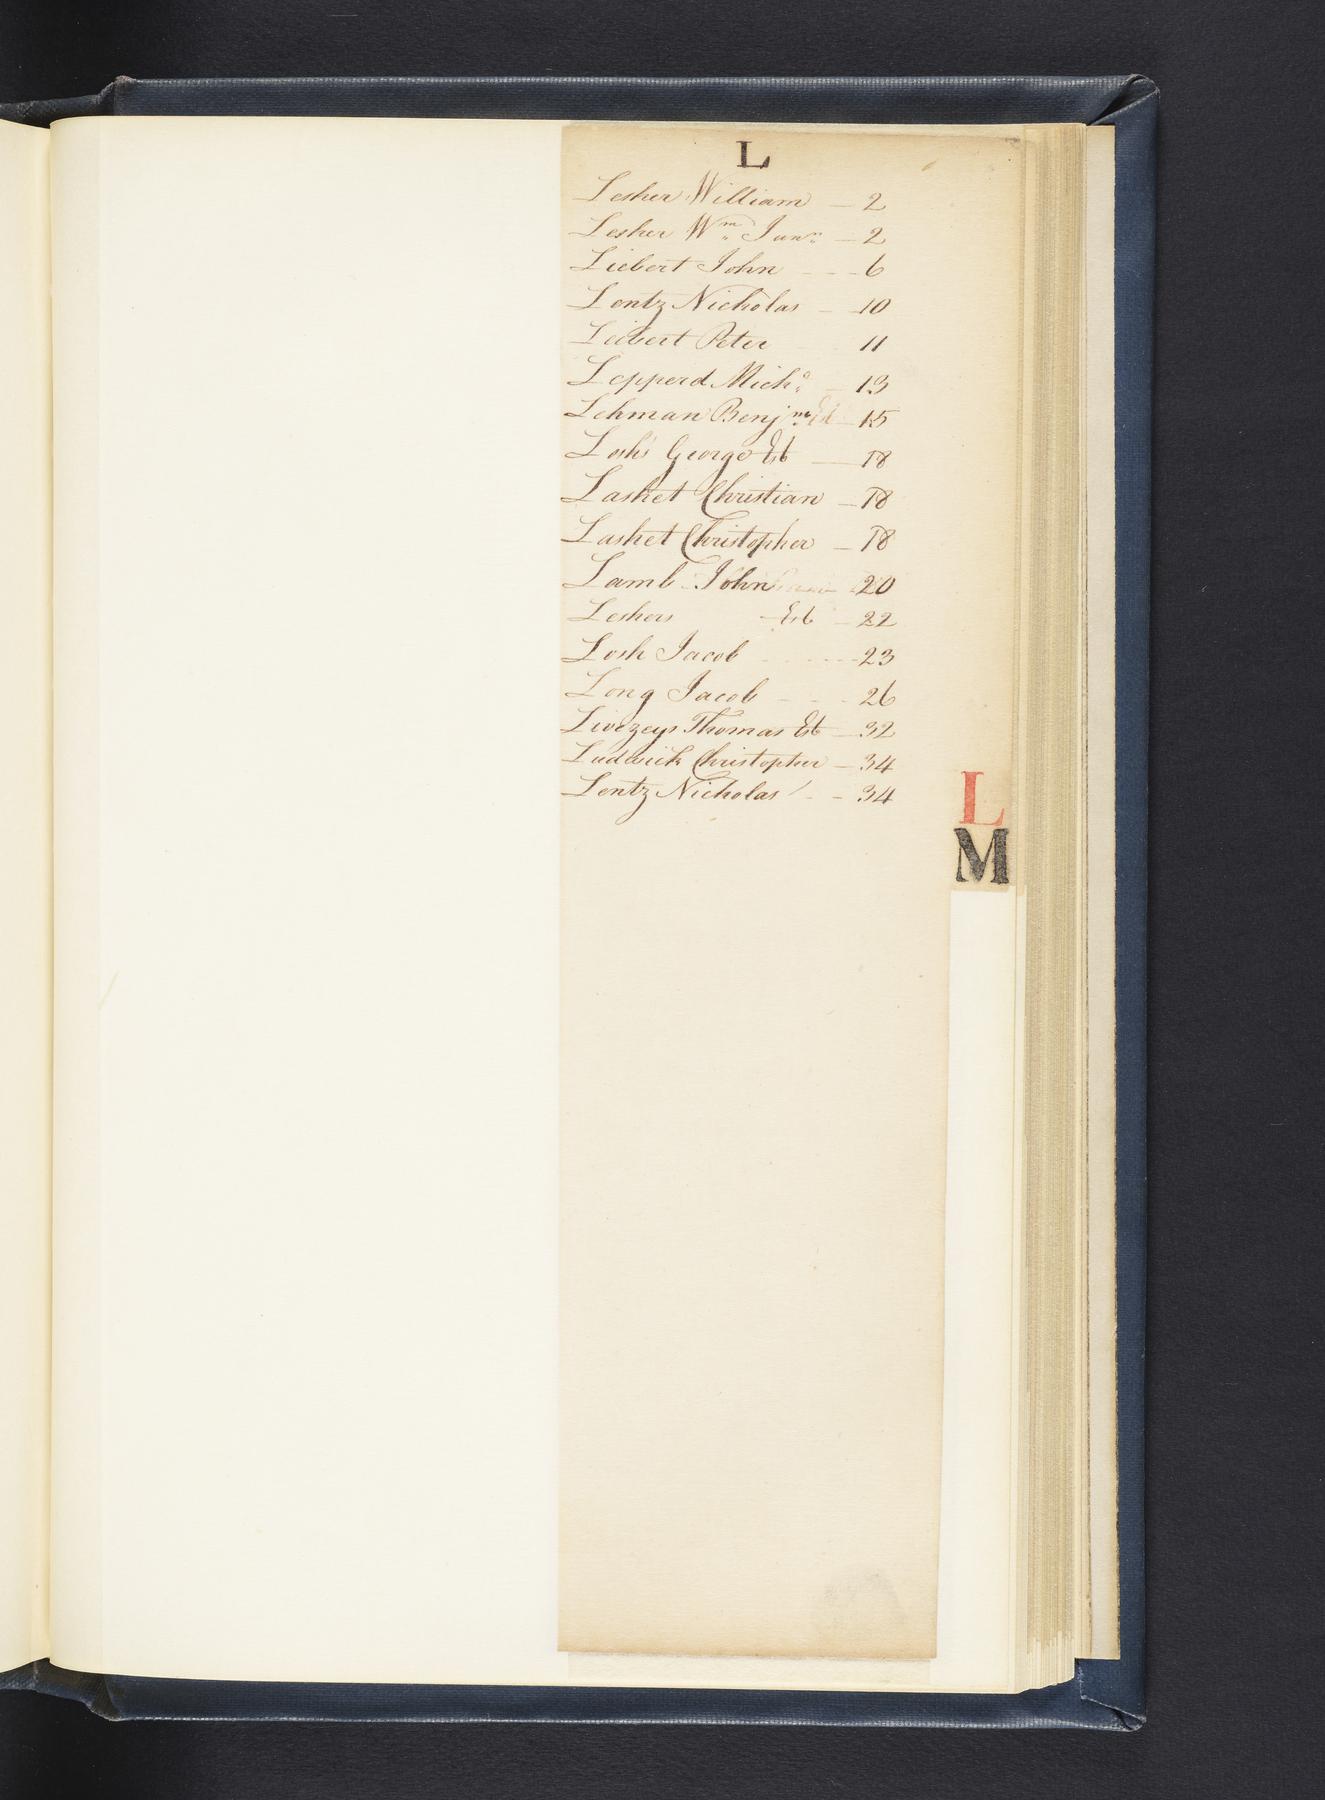 L
Lesher William — 2
Lesher Wm Junr — 2
Liebert John - - - 6
Lentz Nicholas — 10
Leibert Peter 11
Lepperd Micho — 13
Lehman Benjmn Est — 15
Losh's George Est — 18
Lasket Christian — 18
Lasket Christopher — 18
Lamb John 20
Leshers — Est — 22
Losh Jacob - - - - - 23
Long Jacob - - - 26
Livezeys Thomas Est — 32
Ludwick Christopher — 34
Lentz Nicholas - - 34
L
M